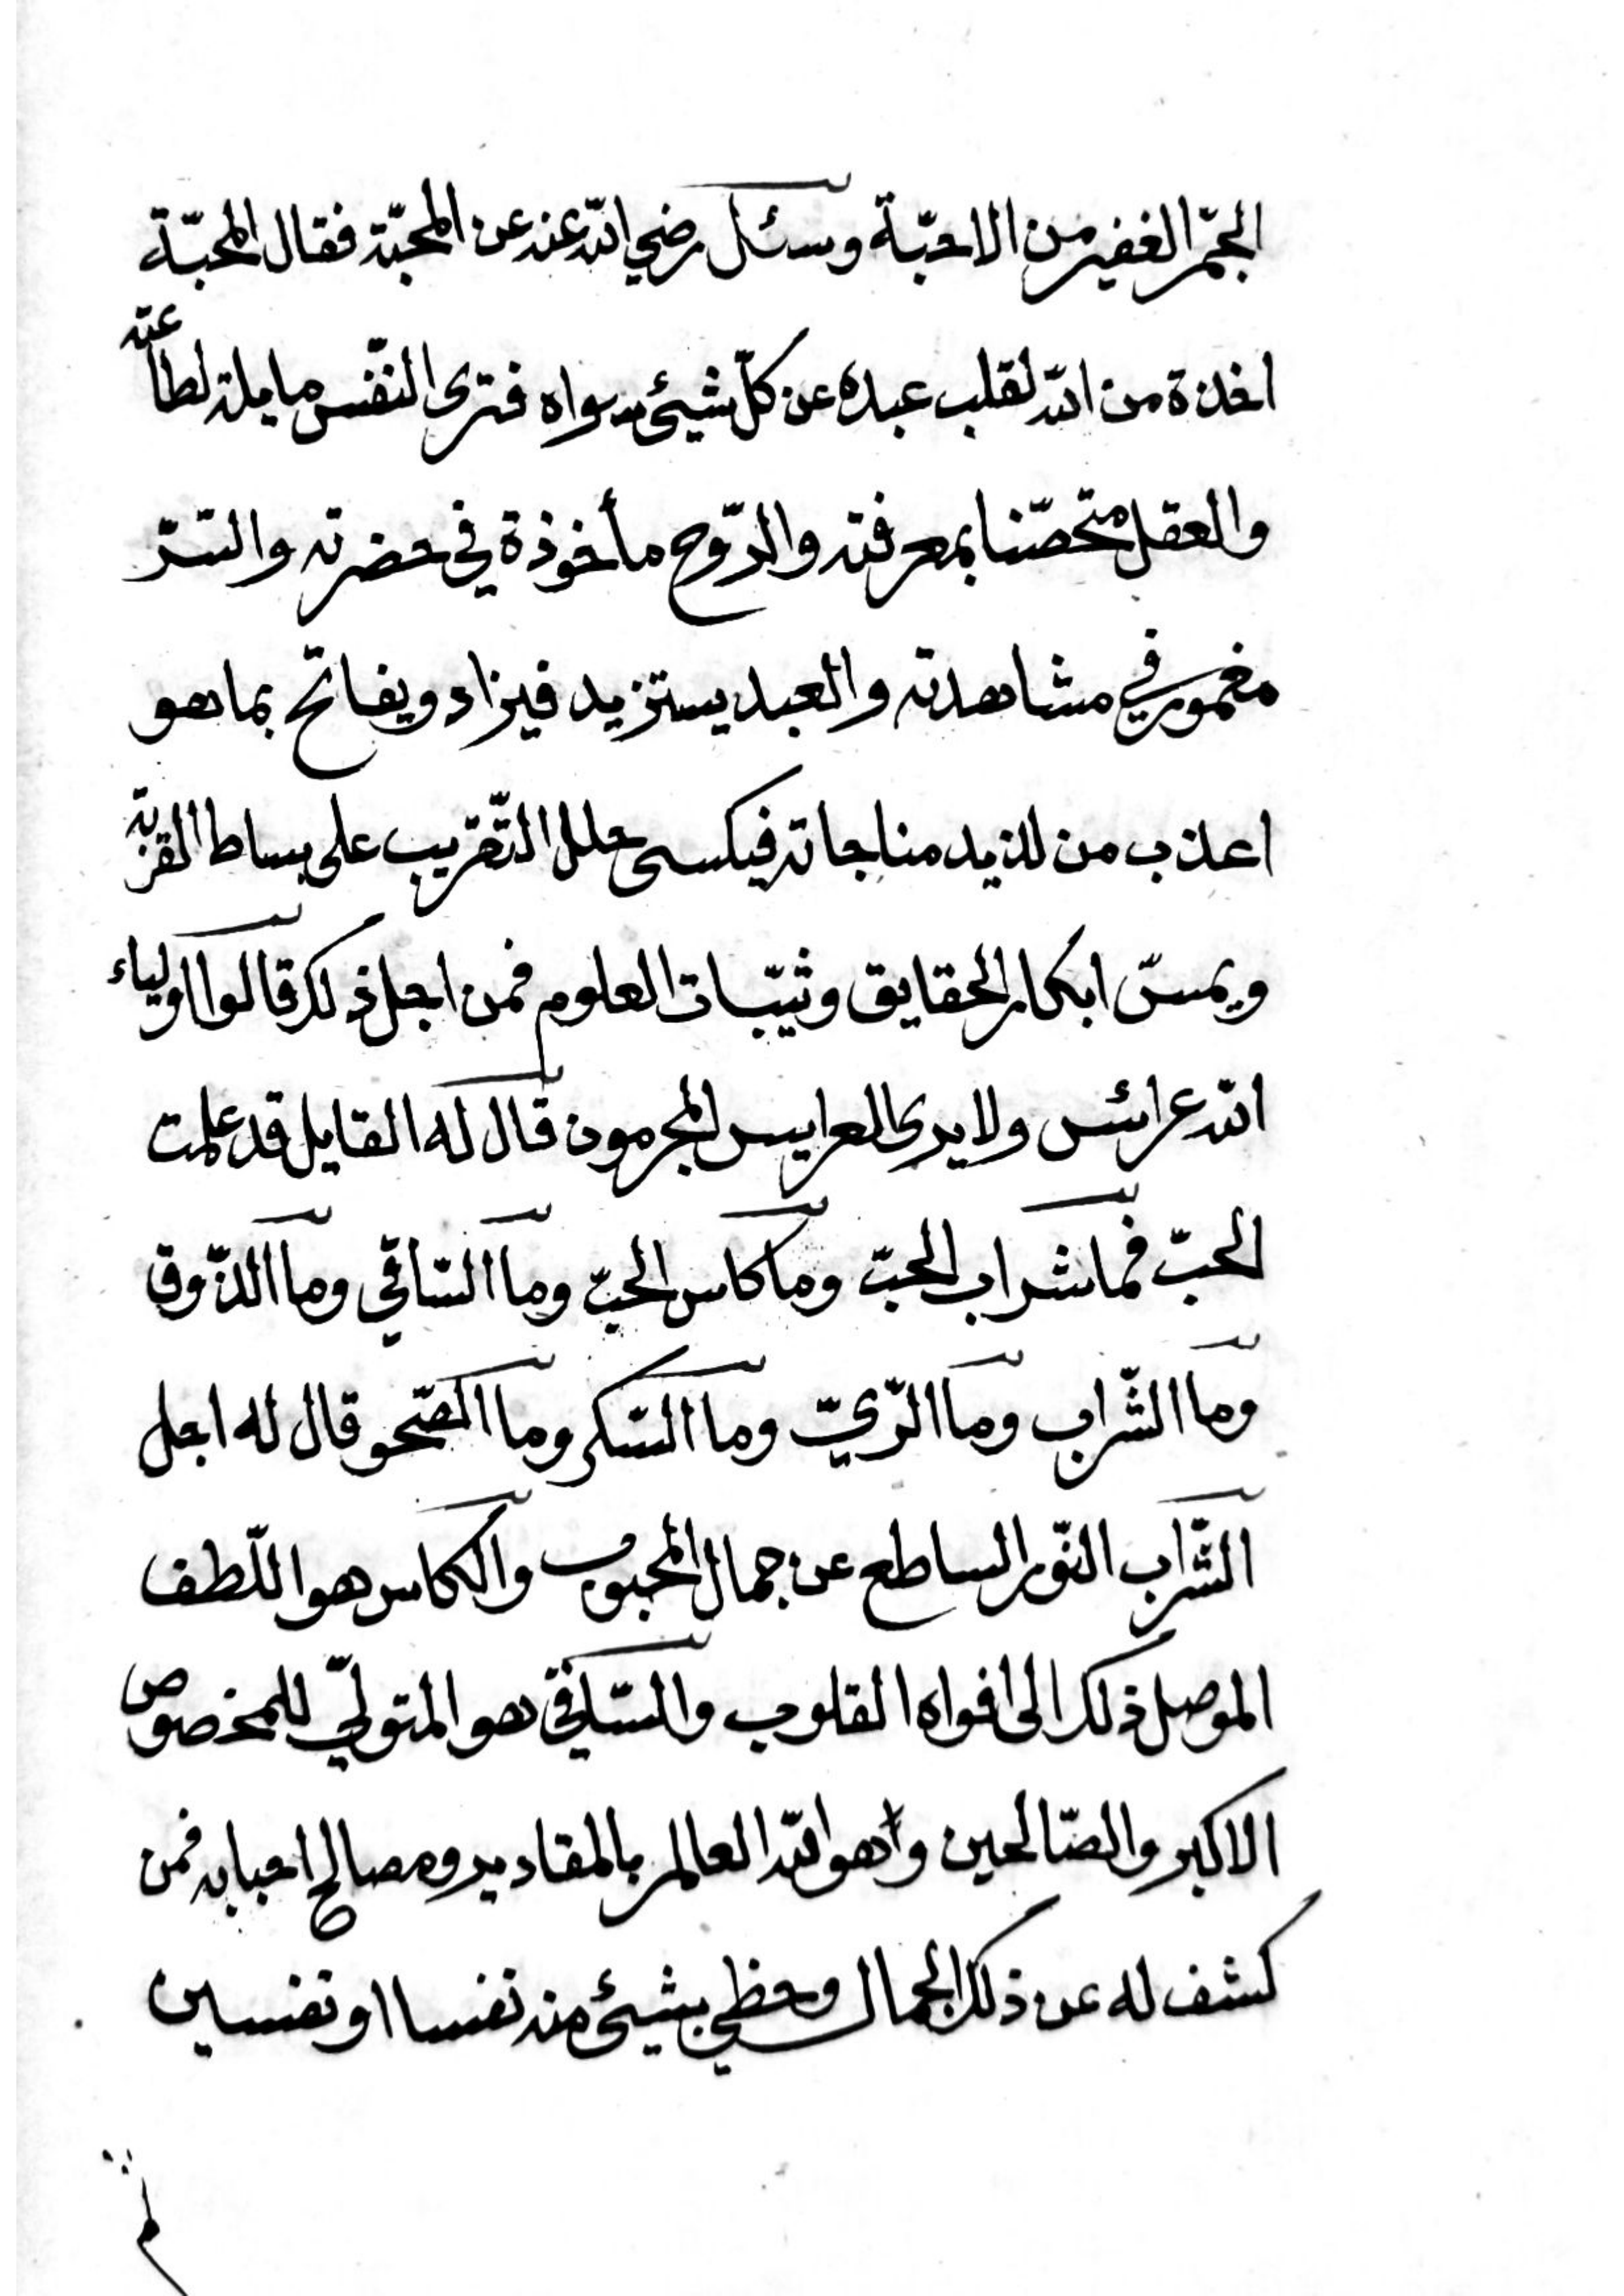 الجمّ الغفير من الاحبّة وسئل رضي الله عنه عن المحبّة فقال المحبّة
اخذة من الله لقلب عبده عن كلّ شيئ سواه فترى النّفس مايلة لطاعته
والعقل متحصّنا بمعرفته والرّوح مأخوذة في حضرته والسّرّ
مغمور في مشاهدته والعبد يستزيد فيزاد ويفاتح بما هو
اعذب من لذيد مناجاته فيكسى حلل التّقريب على بساط القربة
ويمسّ ابكار الحقايق وثيّبات العلوم فمن اجل ذلك قالوا اولياء
الله عرائس ولا يرى العرايس المجرمون قال له القايل قد علمت
الحبّ فما شراب الحبّ وما كاس الحبّ وما السّاقي وما الذّوق
وما الشّراب وما الرّيّ وما السّكر وما الصّحو قال له اجل
الشّراب النّور الساطع عن جمال المحبوب والكاس هو اللّطف
الموصل ذلك الى افواه القلوب والسّاقي هو المتولّي للمخصوص
الاكبر والصّالحين وهو الله العالم بالمقادير ومصالح احبابه فمن
كشف له عن ذلك الجمال وحظي بشيئ منه نفسا او نفسين